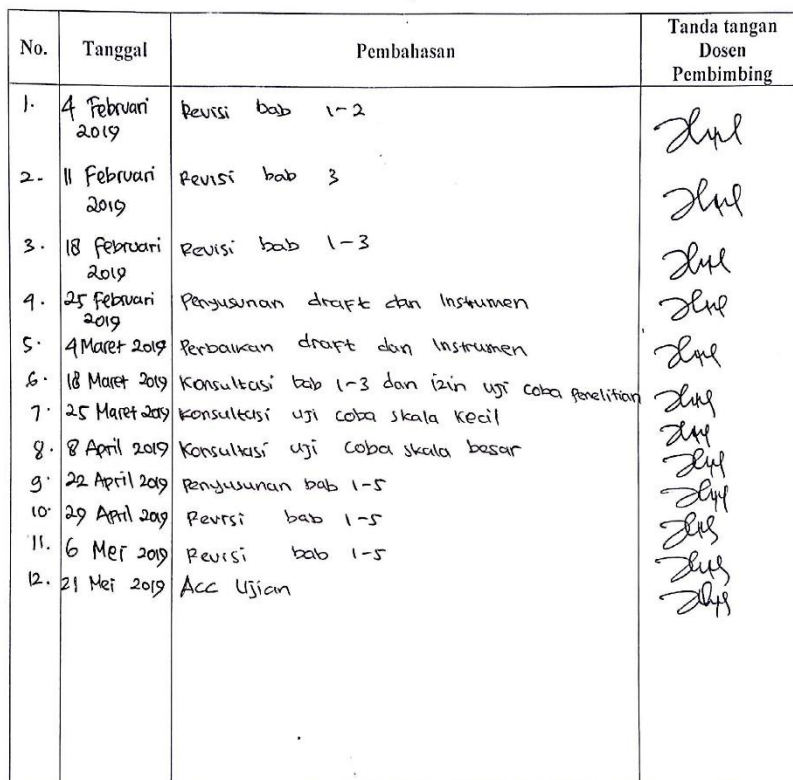 No. Tanggal Pembahasan Tanda tangan
Dosen
Pembimbing
1. 4 Februari Revisi bab 1-2
2019
2. 11 Februari Revisi bab 3
2019
3. 18 Februari Revisi bab 1-3
2019
4. 25 Februari Penyusunan draft dan Instrumen
2019
5. 4 Maret 2019 Perbaikan draft dan Instrumen
6. 18 Maret 2019 Konsultasi bab 1-3 dan izin uji coba penelitian
7. 25 Maret 2019 Konsultasi uji coba skala kecil
8. 8 April 2019 Konsultasi uji coba skala besar
9. 22 April 2019 Penyusunan bab 1-5
10. 29 April 2019 Revisi bab 1-5
11. 6 Mei 2019 Revisi bab 1-5
12. 21 Mei 2019 Acc Ujian